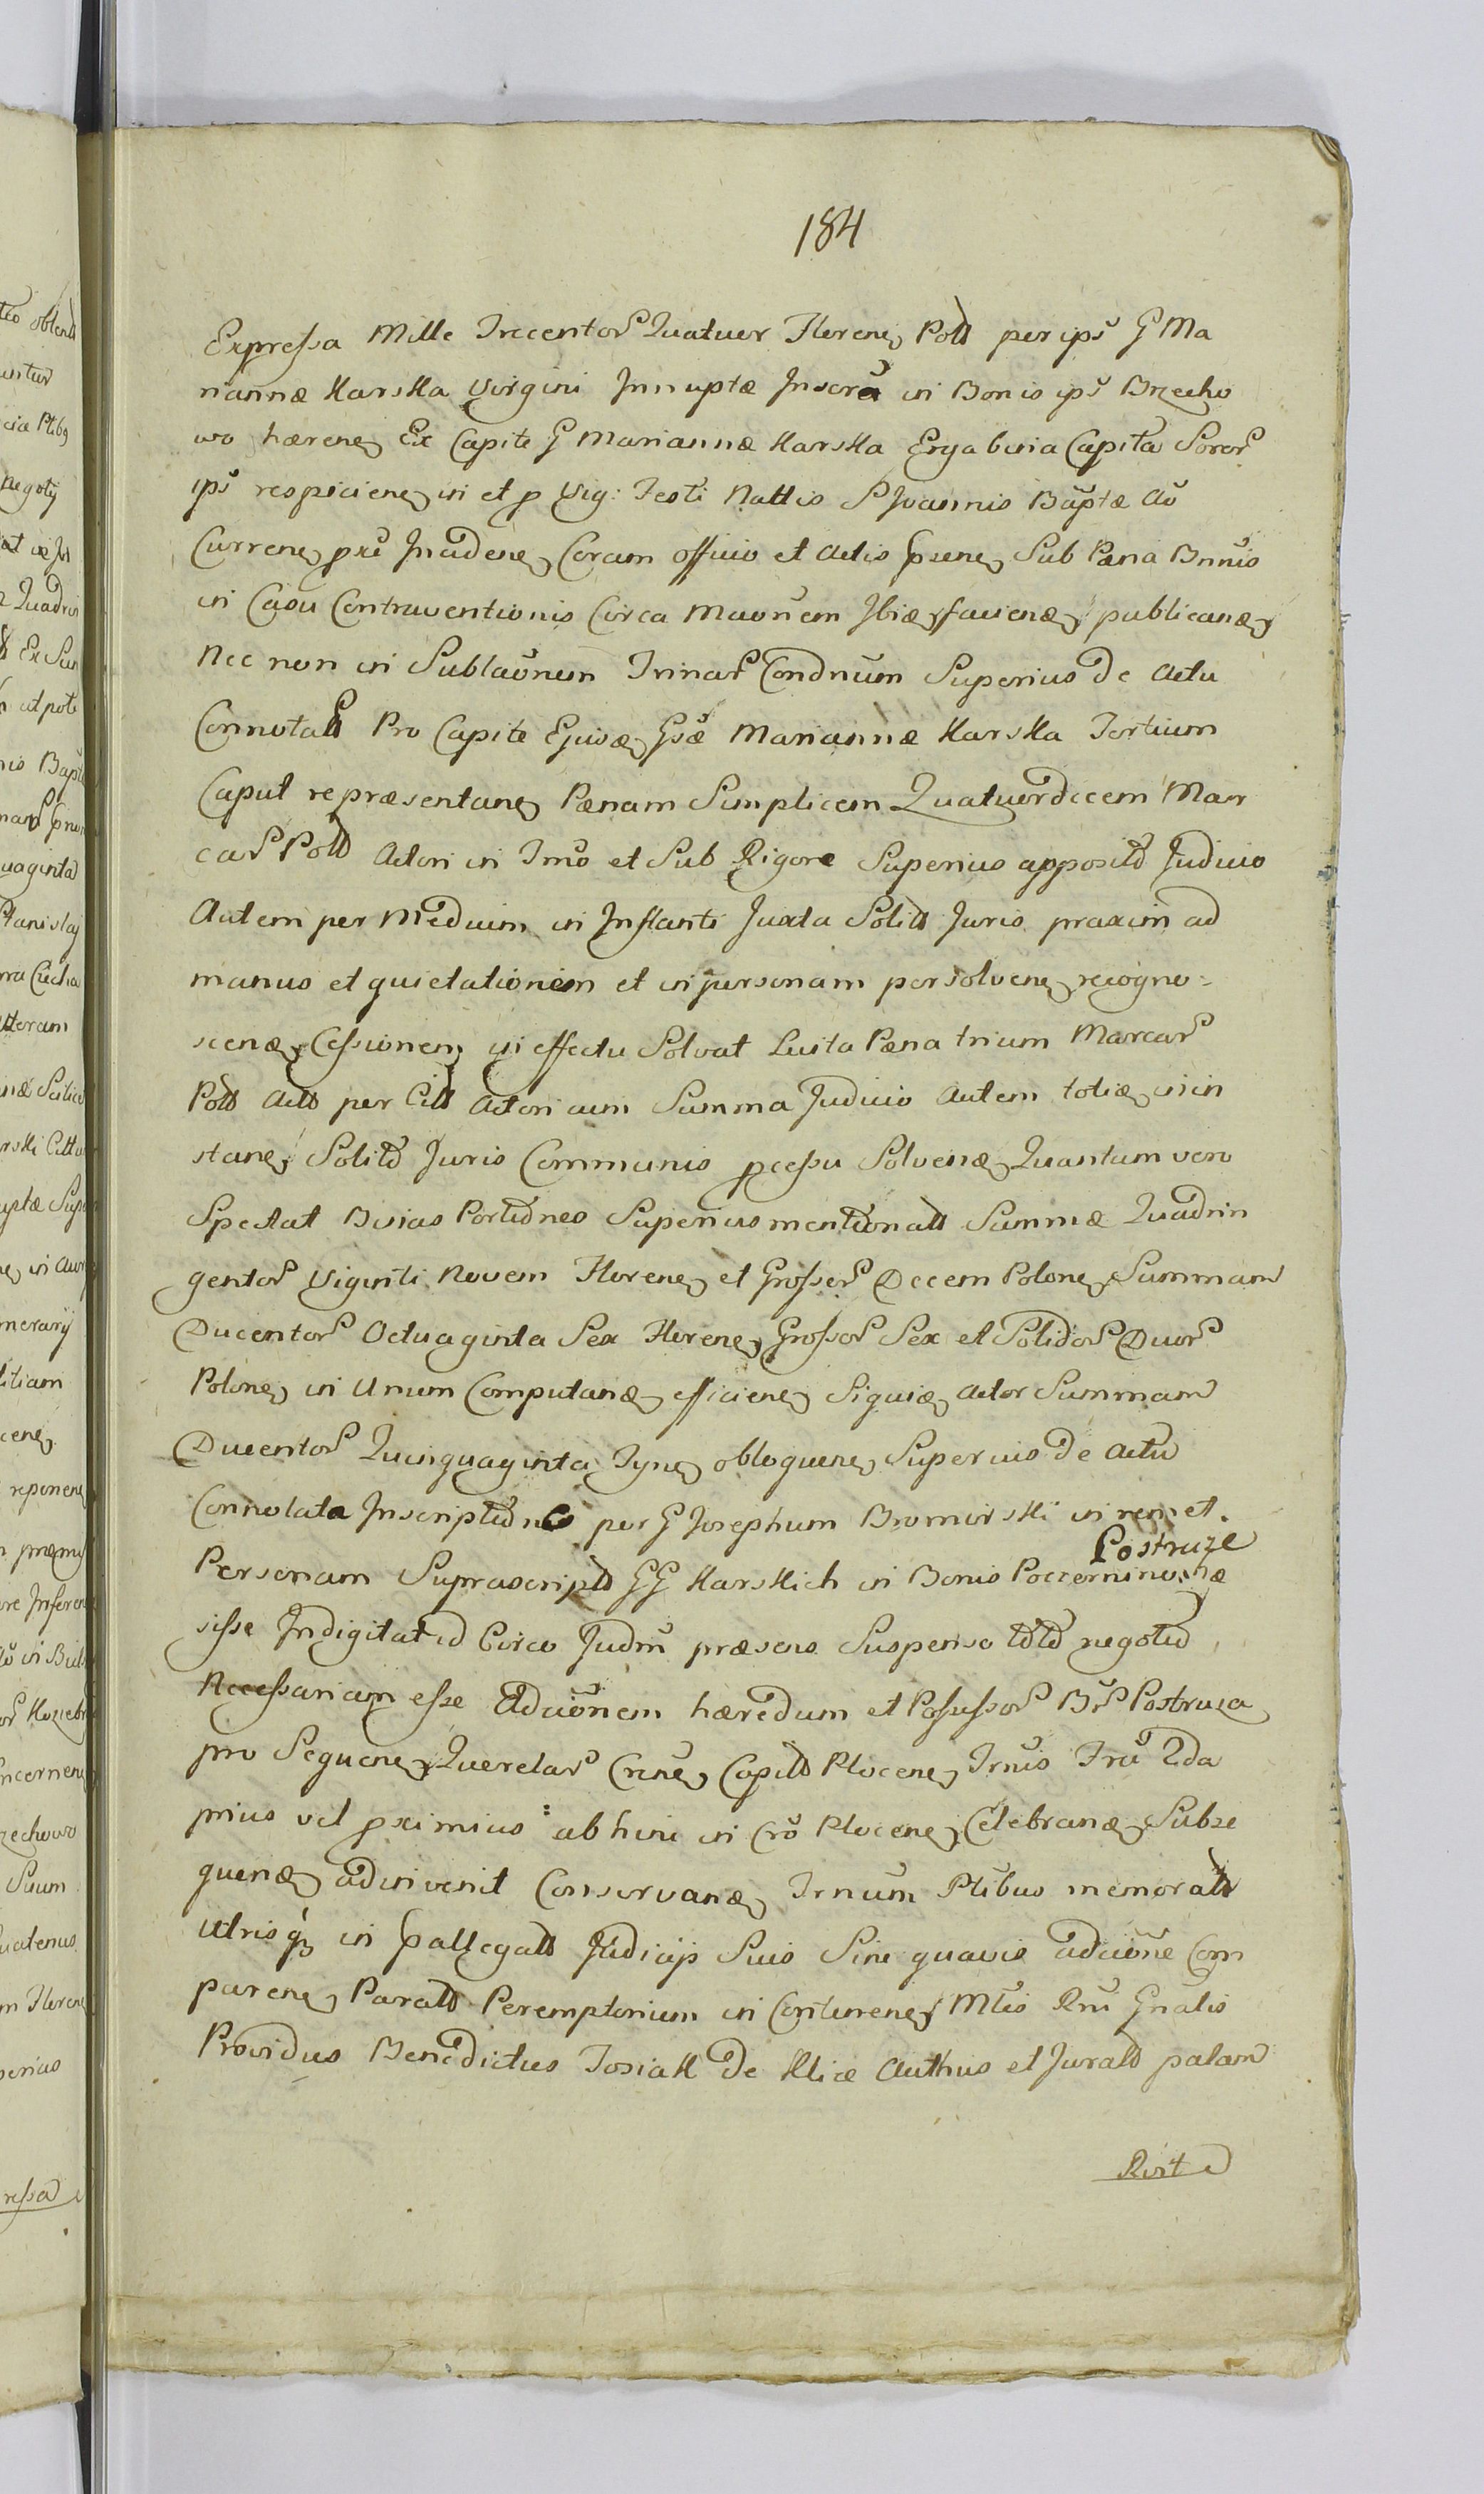 184
Expressa Mille Trecentor Quatuor Floren Poll per ips G Ma
riannæ Karska Virgini Innuptæ Inscra in Bonis ips Brzecho
wo hæren Ex Capite G Mariannæ Karska Erga bina Capita Soror
ips respicien in et p Vig: Festi Nattis S Joannis Baptæ Au
Curren pxe Inciden Coram officio et Actis Spsen Sub Pæna Bnnis
in Casu Contraventionis Circa Maonem Ibid facien publican
Nec non in Sublaonem Trinar Condnum Superius de Actu
Connotatt Pro Capite Ejusd Gsæ Mariannæ Karska Tertium
Caput repræsentan Pænam Simplicem Quatuordecem Mar
car Poll Actori in Tmo et Sub Rigore Superius apposito Judicio
Autem per Medium in Instanti Juxta Solitt Juris praxim ad
manus et quietationem et in personam persolven recogno=
scend Cessionem in effectu Solvat Luita Pæna trium Marcar
Poll Actt per Citt Actori cum Summa Judicio Autem totid in in
stan Solito Juris Communis pcessu Solvend Quantum vero
Spectat Binas Portiones Superius mentionatt Summæ Quadrin
gentor Viginti Novem Floren et Grossor Decem Polon Summam
Ducentor Octuaginta Sex Floren Grossor Sex et Solidor Duor
Polon in Unum Computand efficien Siquid Actor Summam
Ducentor Quinquaginta Tyn obloquen Superius de Actu
Connotata Inscriptione per G Josephum Bromirski in rem et
Personam Suprascriptt GG Karskich in Bonis Poczernino
Postruze
sisse Indigitat id Circo Judm præsens Suspenso toto negotio
Necessariam esse Adcitionem hæredum et Possessor Br Postruza
pro Sequen Querelar Cren Capitt Plocen Trnis Tra
prius vel pximius abhinc in Cro Plocen Celebrand Subse
quend adinvenit Conservand Trnum Ptibus memoratt
utrisq in Spallegatt Judicijs Suis Sine quavis adcitione Com
paren Paratt Peremptorium in Continen Mtis Rni Gnalis
Providus Benedictus Tosiak de Klice Authus et Juratt palam